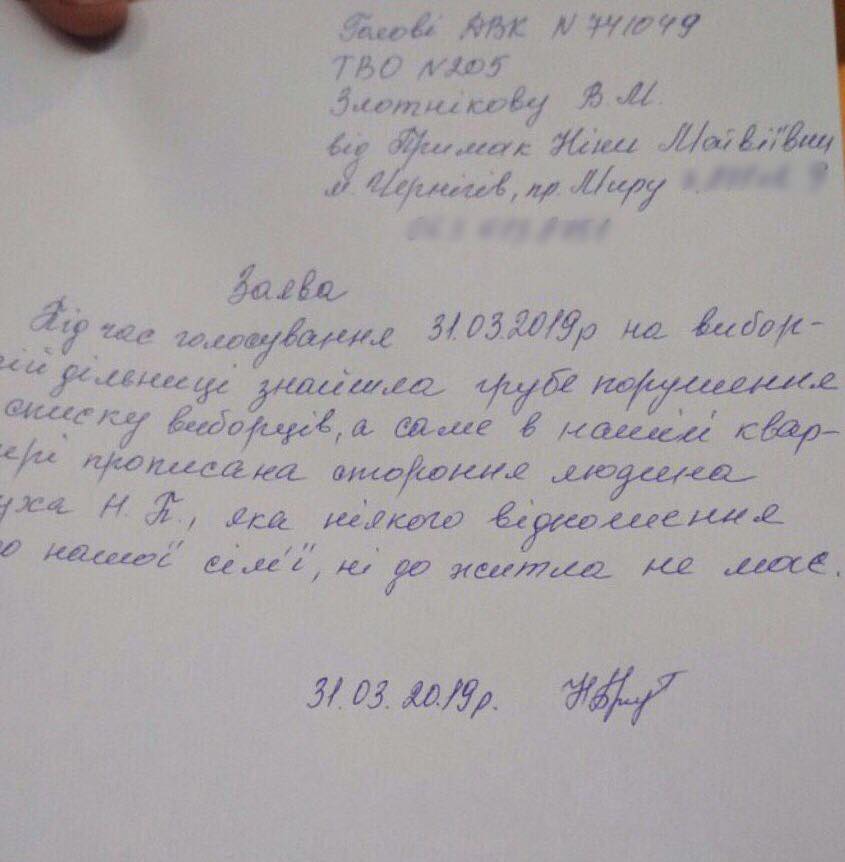 Голові ДВК N 741049
ТВО N205
Злотнікову В.М.
від Примак Ніни Матвіївни
м. Чернігів, пр. Миру
Заява
Під час голосування 31.03.2019р на вибор-
ній дільниці знайшла грубе порушення
списку виборців, а саме в нашій квар-
тирі прописана стороння людина
уха Н. П., яка ніякого відношення
о нашої сім'ї, ні до житла не має.
31.03.2019р.